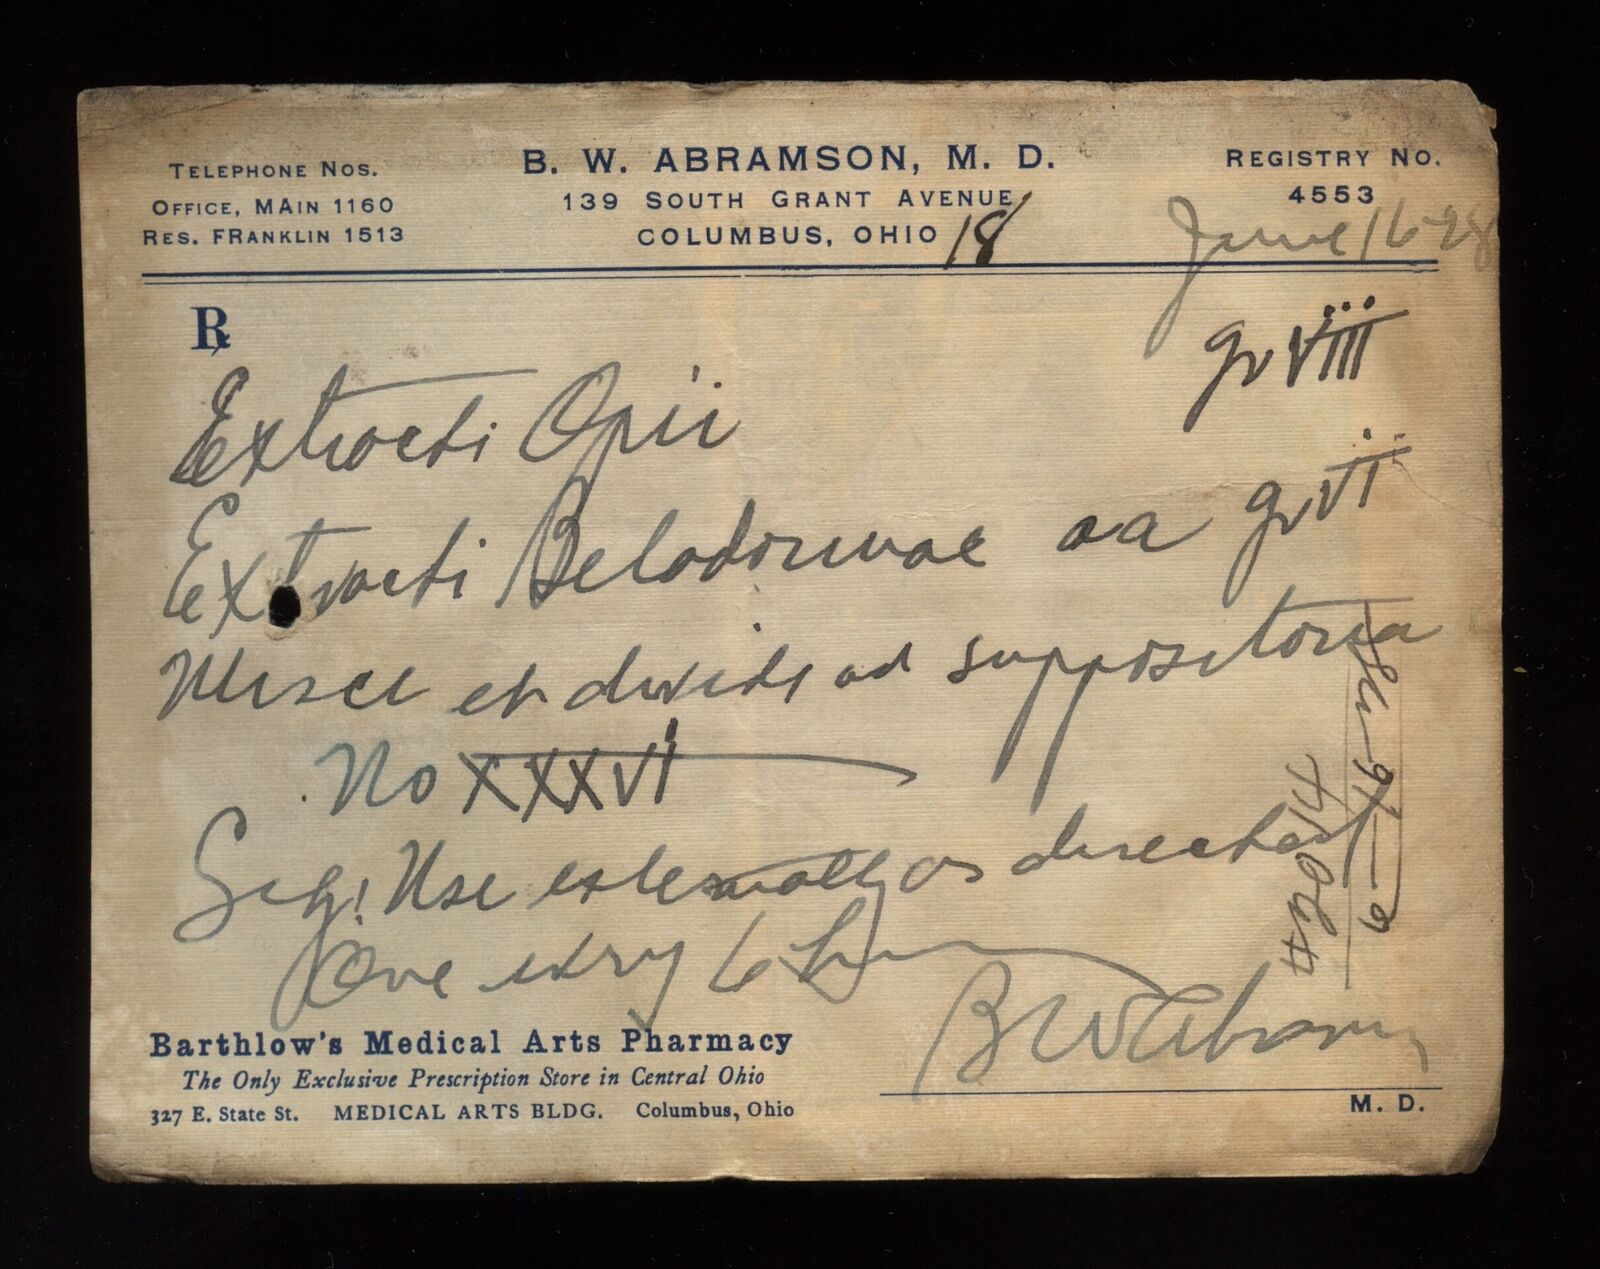 TELEPHONE NOS.
OFFICE, MAIN 1160
RES. FRANKLIN 1513
B. W. ABRAMSON, M. D.
139 SOUTH GRANT AVENUE
COLUMBUS, OHIO 18
REGISTRY NO.
4553
June 16-28
℞
gr viii
Extracti Opii
Extracti Beladonnae aa gr vi
Misce et divide ad suppositoria
No XXXVI
Sig! Use externally as directed
One every 6 h
BWAbramson
M. D.
Barthlow's Medical Arts Pharmacy
The Only Exclusive Prescription Store in Central Ohio
327 E. State St. MEDICAL ARTS BLDG. Columbus, Ohio